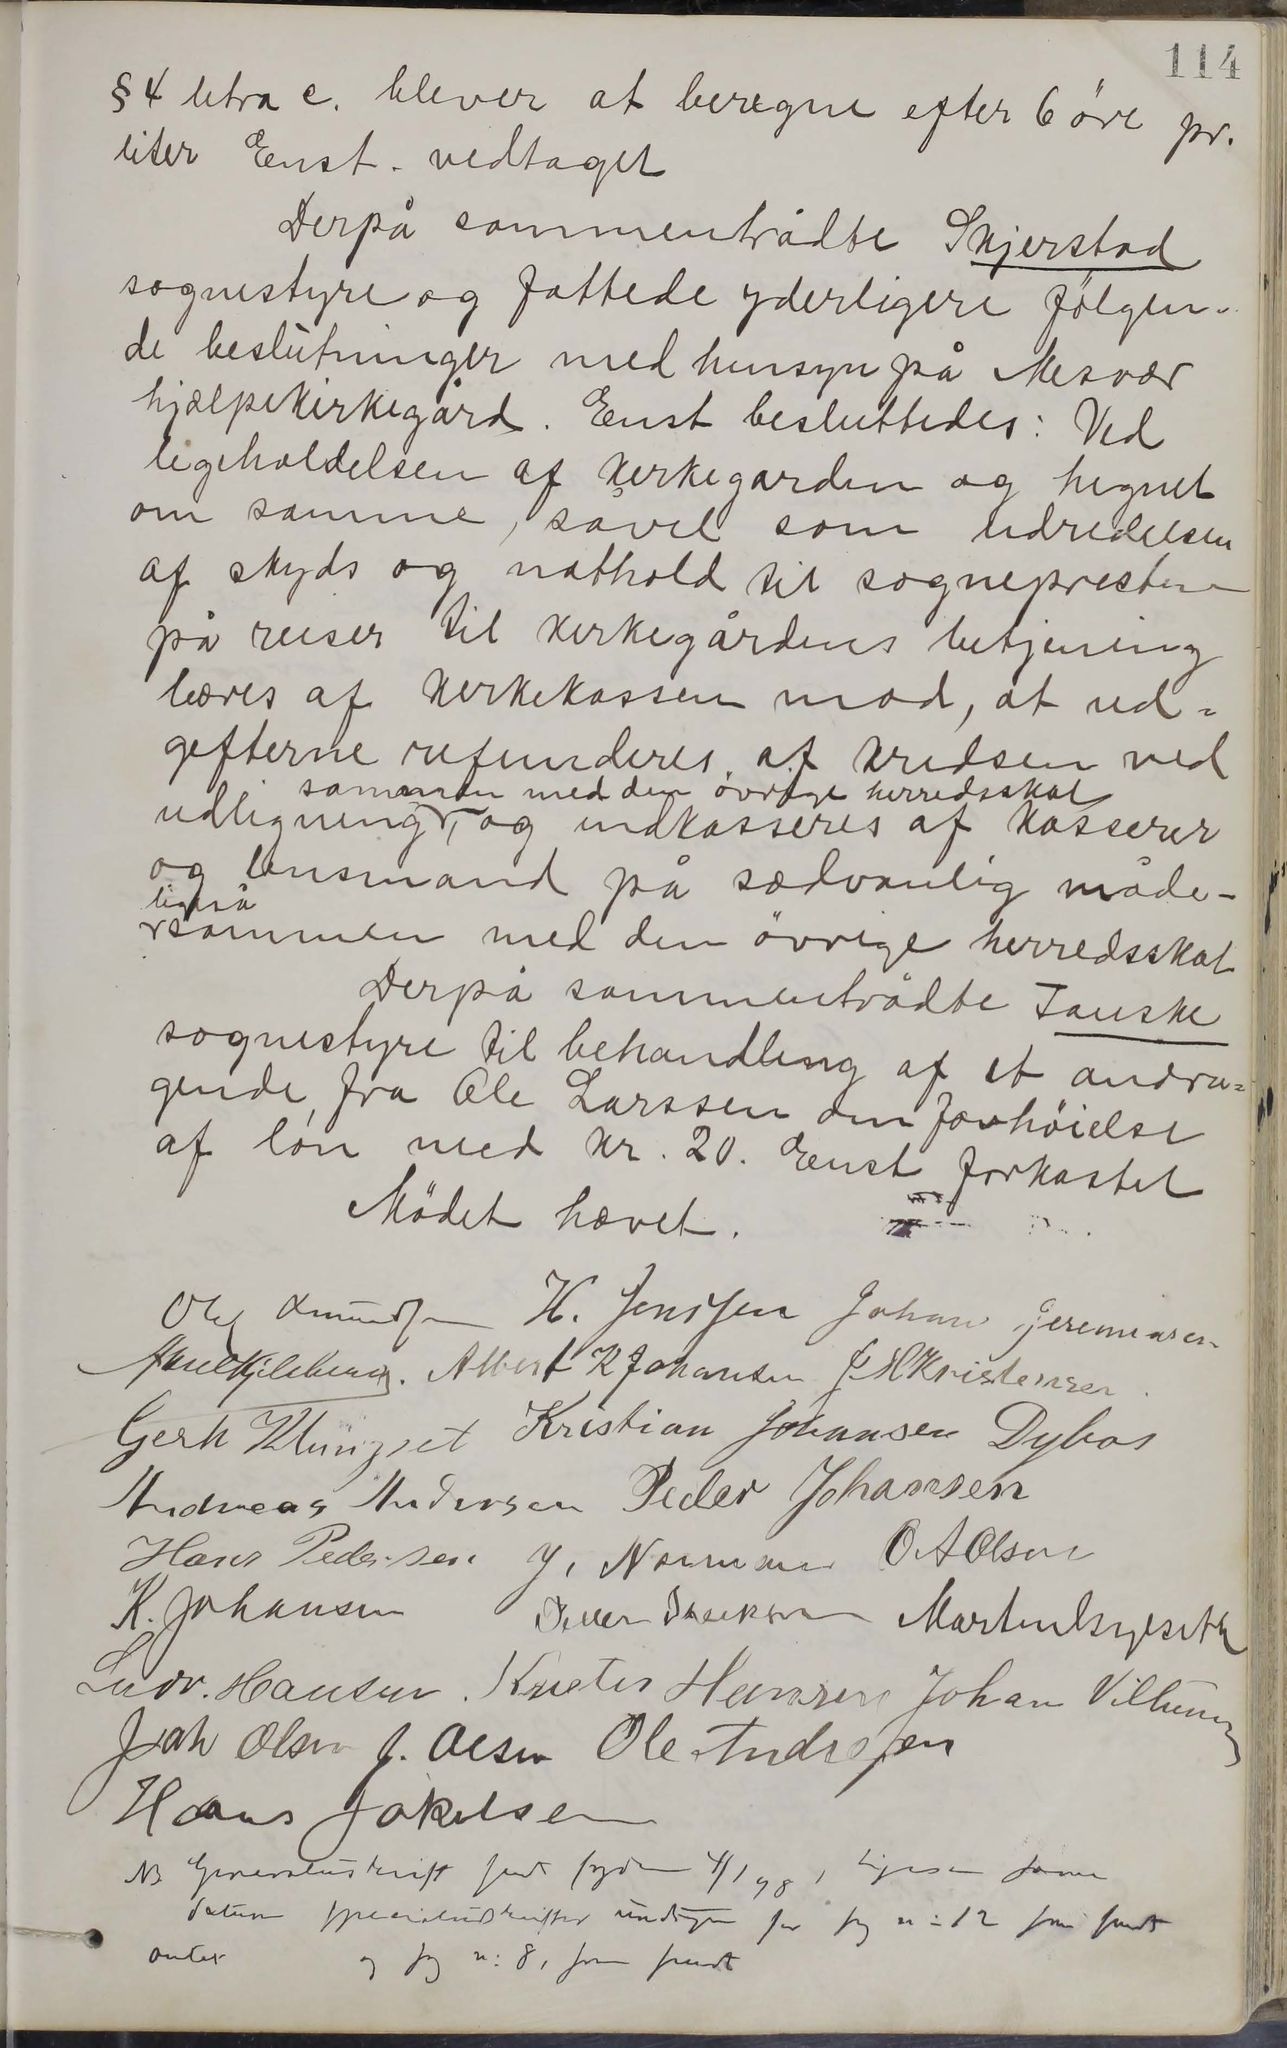 114
§ 4 litra c. blever at beregne efter 6 öre pr.
liter Enst. vedtaget
Derpå sammentrådte Skjerstad
sognestyre og fattede yderligere fölgen-
de beslutninger med hensyn på Misvær
hjælpekirkegård. Enst besluttedes: Ved
ligeholdelsen af kirkegården og hegnet
om samme, såvel som udredelsen
af skyds og nathold til sognepresten
på reiser til kirkegårdens betjening
bæres af kirkekassen mod, at ud=
gifterne refunderes af kredsen ved
sammen med den övrige herredsskat
udligning, og indkasseres af kasserer
og lensmand på sædvanlig måde-
ligeså
sammen med den övrige herredsskat
Derpå sammentrådte Fauske
sognestyre til behandling af et andra=
gende fra Ole Larssen om forhöielse
af lön med kr. 20. Enst forkastet
Mödet hævet.
Ole Amundsen H. Jenssen Johan Jeremiasen
Axel Kjelsberg. Albert K Johansen J. H Kristensen
Gerh Klungset Kristian Johansen Dybos
Andreas Andersen Peder Johansen
Hans Pedersen J. Normann O A Olsen
K. Johansen Peder Martin
Ludv. Hansen. Hansen Johan
Joh Olsen J. Olsen Ole Andresen
Hans Jakobsen
NB Generaludskrift sendt fogden 4/1 98,
datum specialudskrifter undtagen for sag n: 12 som sendt
og sag n: 8, som sendt